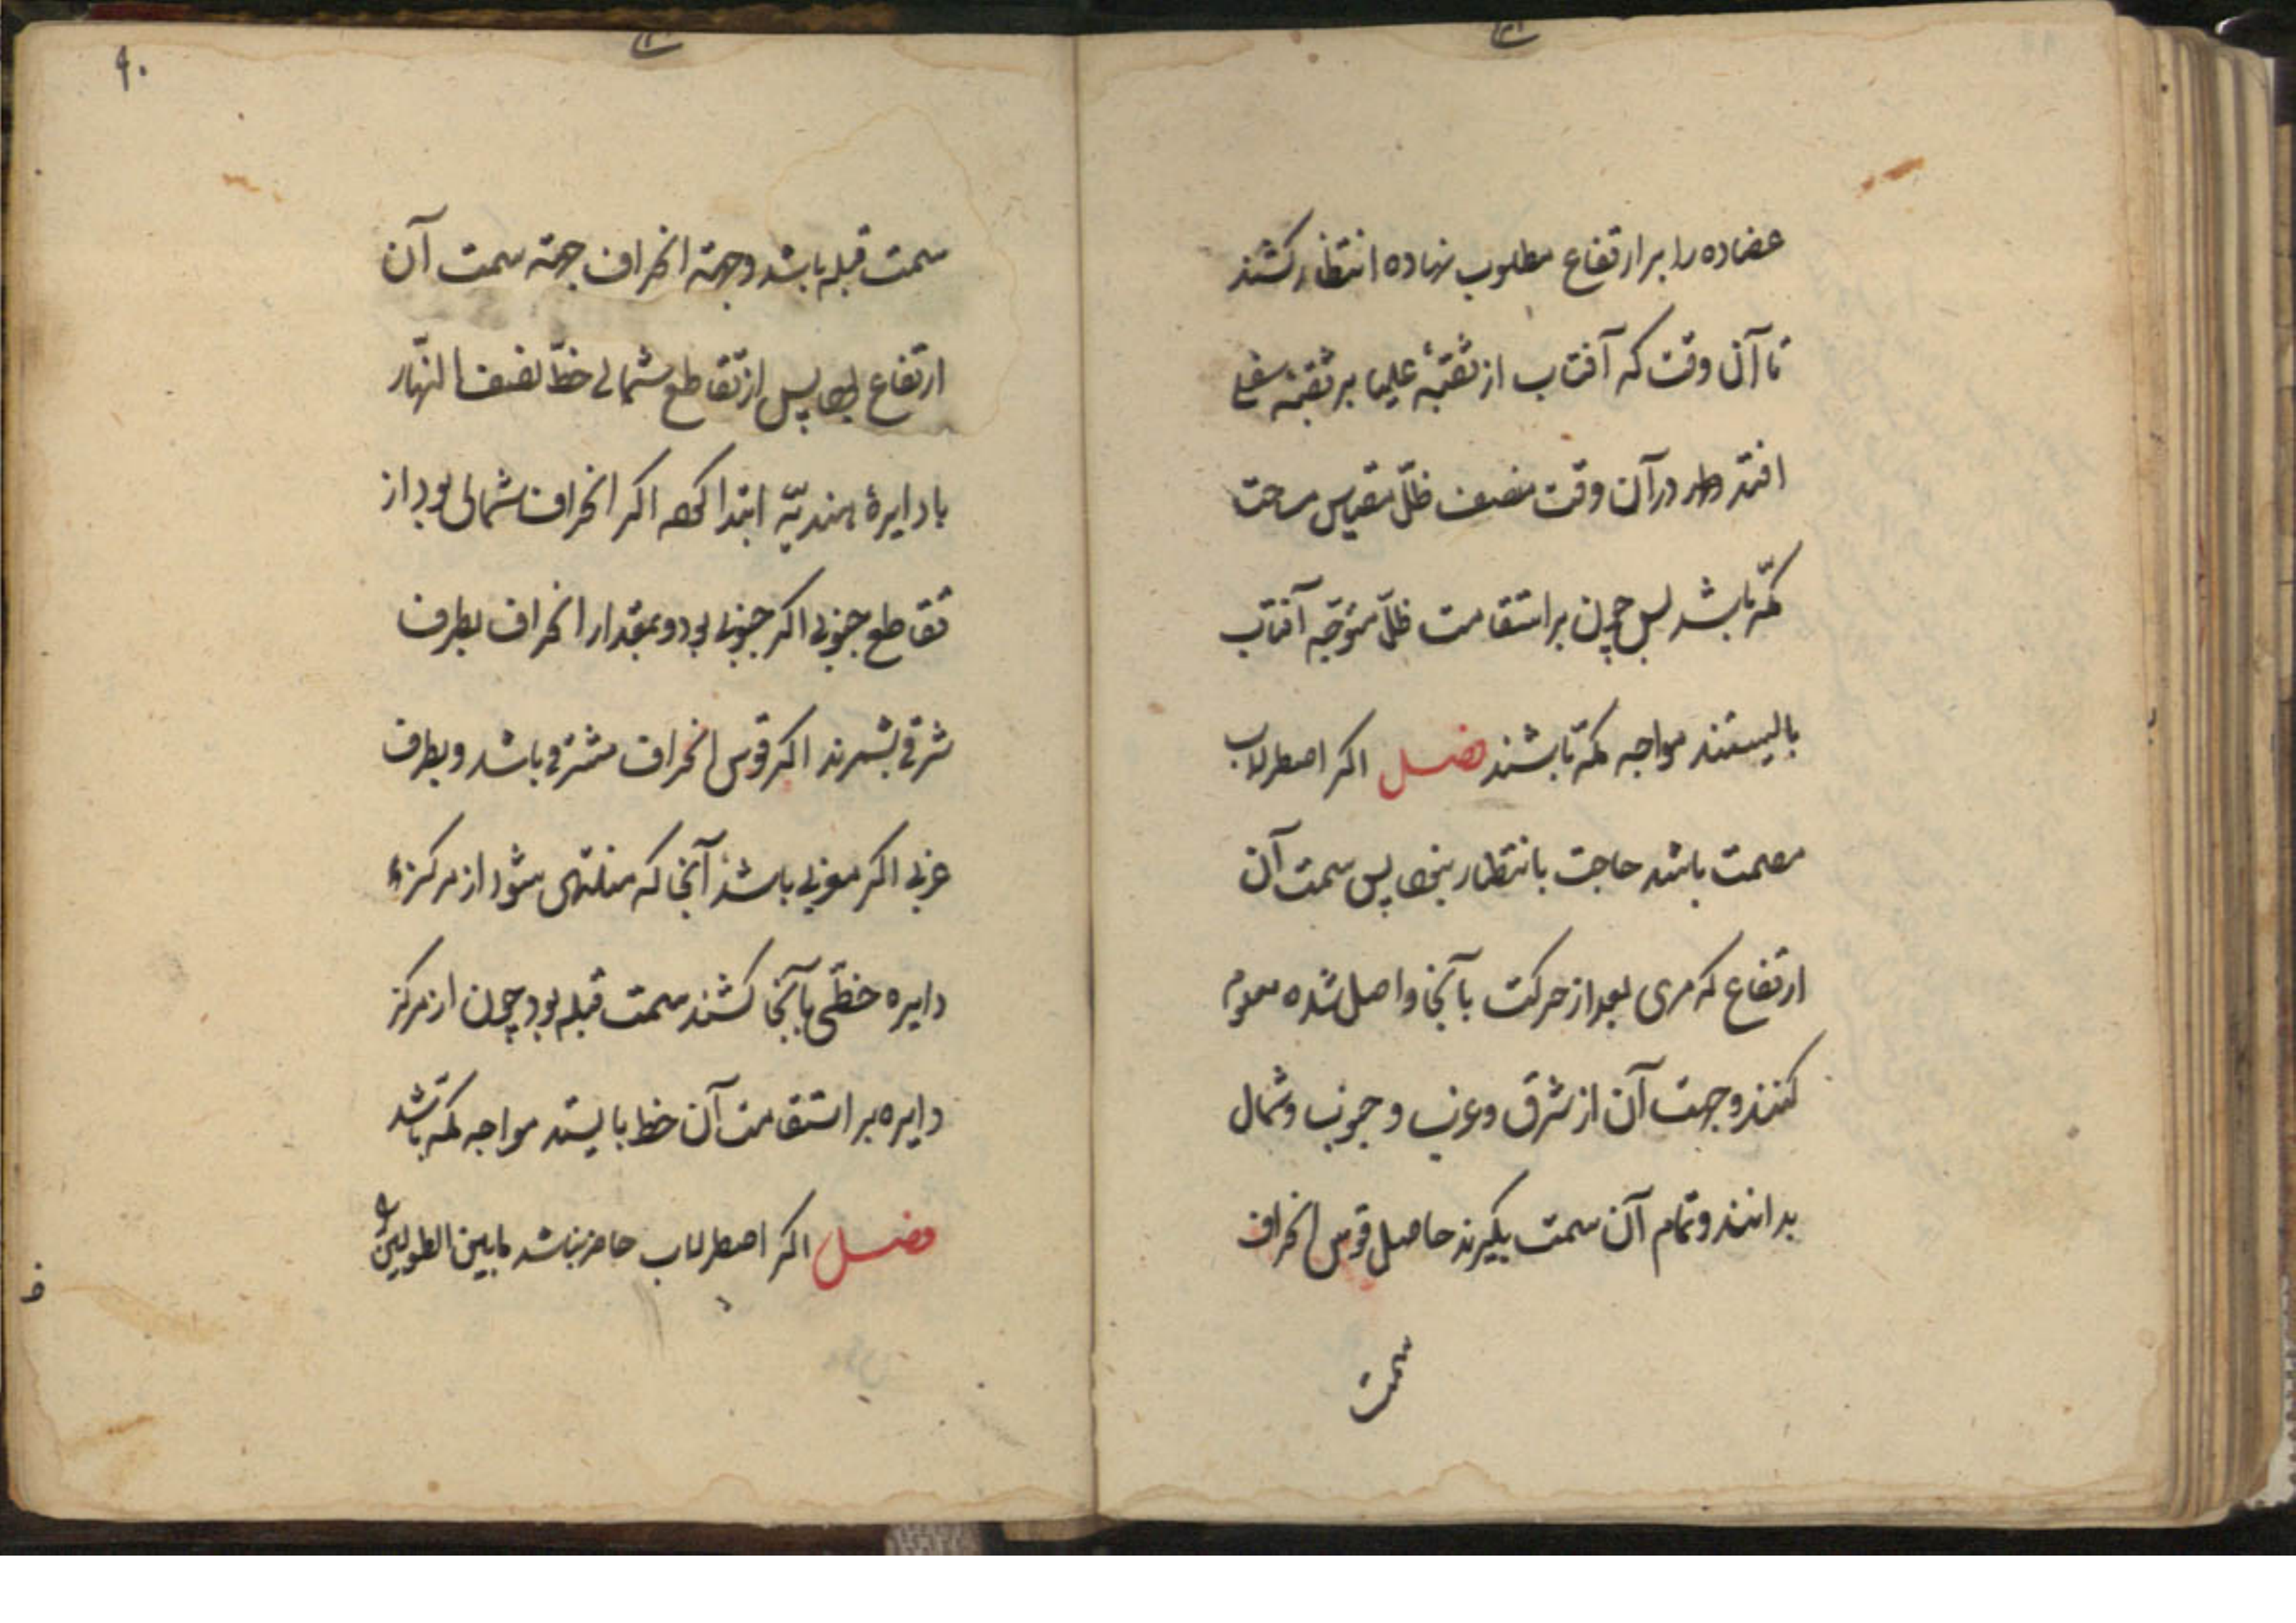 عضاده را بر ارتفاع مطلوب نهاده انتظار کشند
تا آن وقت که آفتاب از ثقبهٔ علیا بر ثقبه سفلی
افتد در آن وقت منصف ظلّ مقیاس سمت
مکّه باشد پس چون بر استقامت ظلّ متوجّه آفتاب
بایستند مواجه مکّه باشند فصل اکر اصطرلاب
مسمت باشد حاجت بانتظار نبود پس سمت آن
ارتفاع که مری بعد از حرکت بآنجا واصل شده معلوم
کنند و جهت آن از شرق و غرب و جنوب و شمال
بدانند و تمام آن سمت بکیرند حاصل قوس انحراف
سمت
۹۰
سمت قبله باشد وجهة انحراف جهة سمت آن
ارتفاع بود پس از تقاطع شمالی خطّ نصف النّهار
با دایرهٔ هندیّه ابتدا کنند اکر انحراف شمالی بود از
تقاطع جنوبی اکر جنوبی بود و بمقدار انحراف بطرف
شرقی بشمرند اکر قوس انحراف مشرقی باشد و بطرف
غربی اکر مغربی باشد آنجا که منتهی شود از مرکز
دایره خطّی بآنجا کشند سمت قبله بود چون از مرکز
دایره بر استقامت آن خط بایستد مواجه مکّه باشد
فصل اکر اصطرلاب حاضر نباشد مابین الطولین